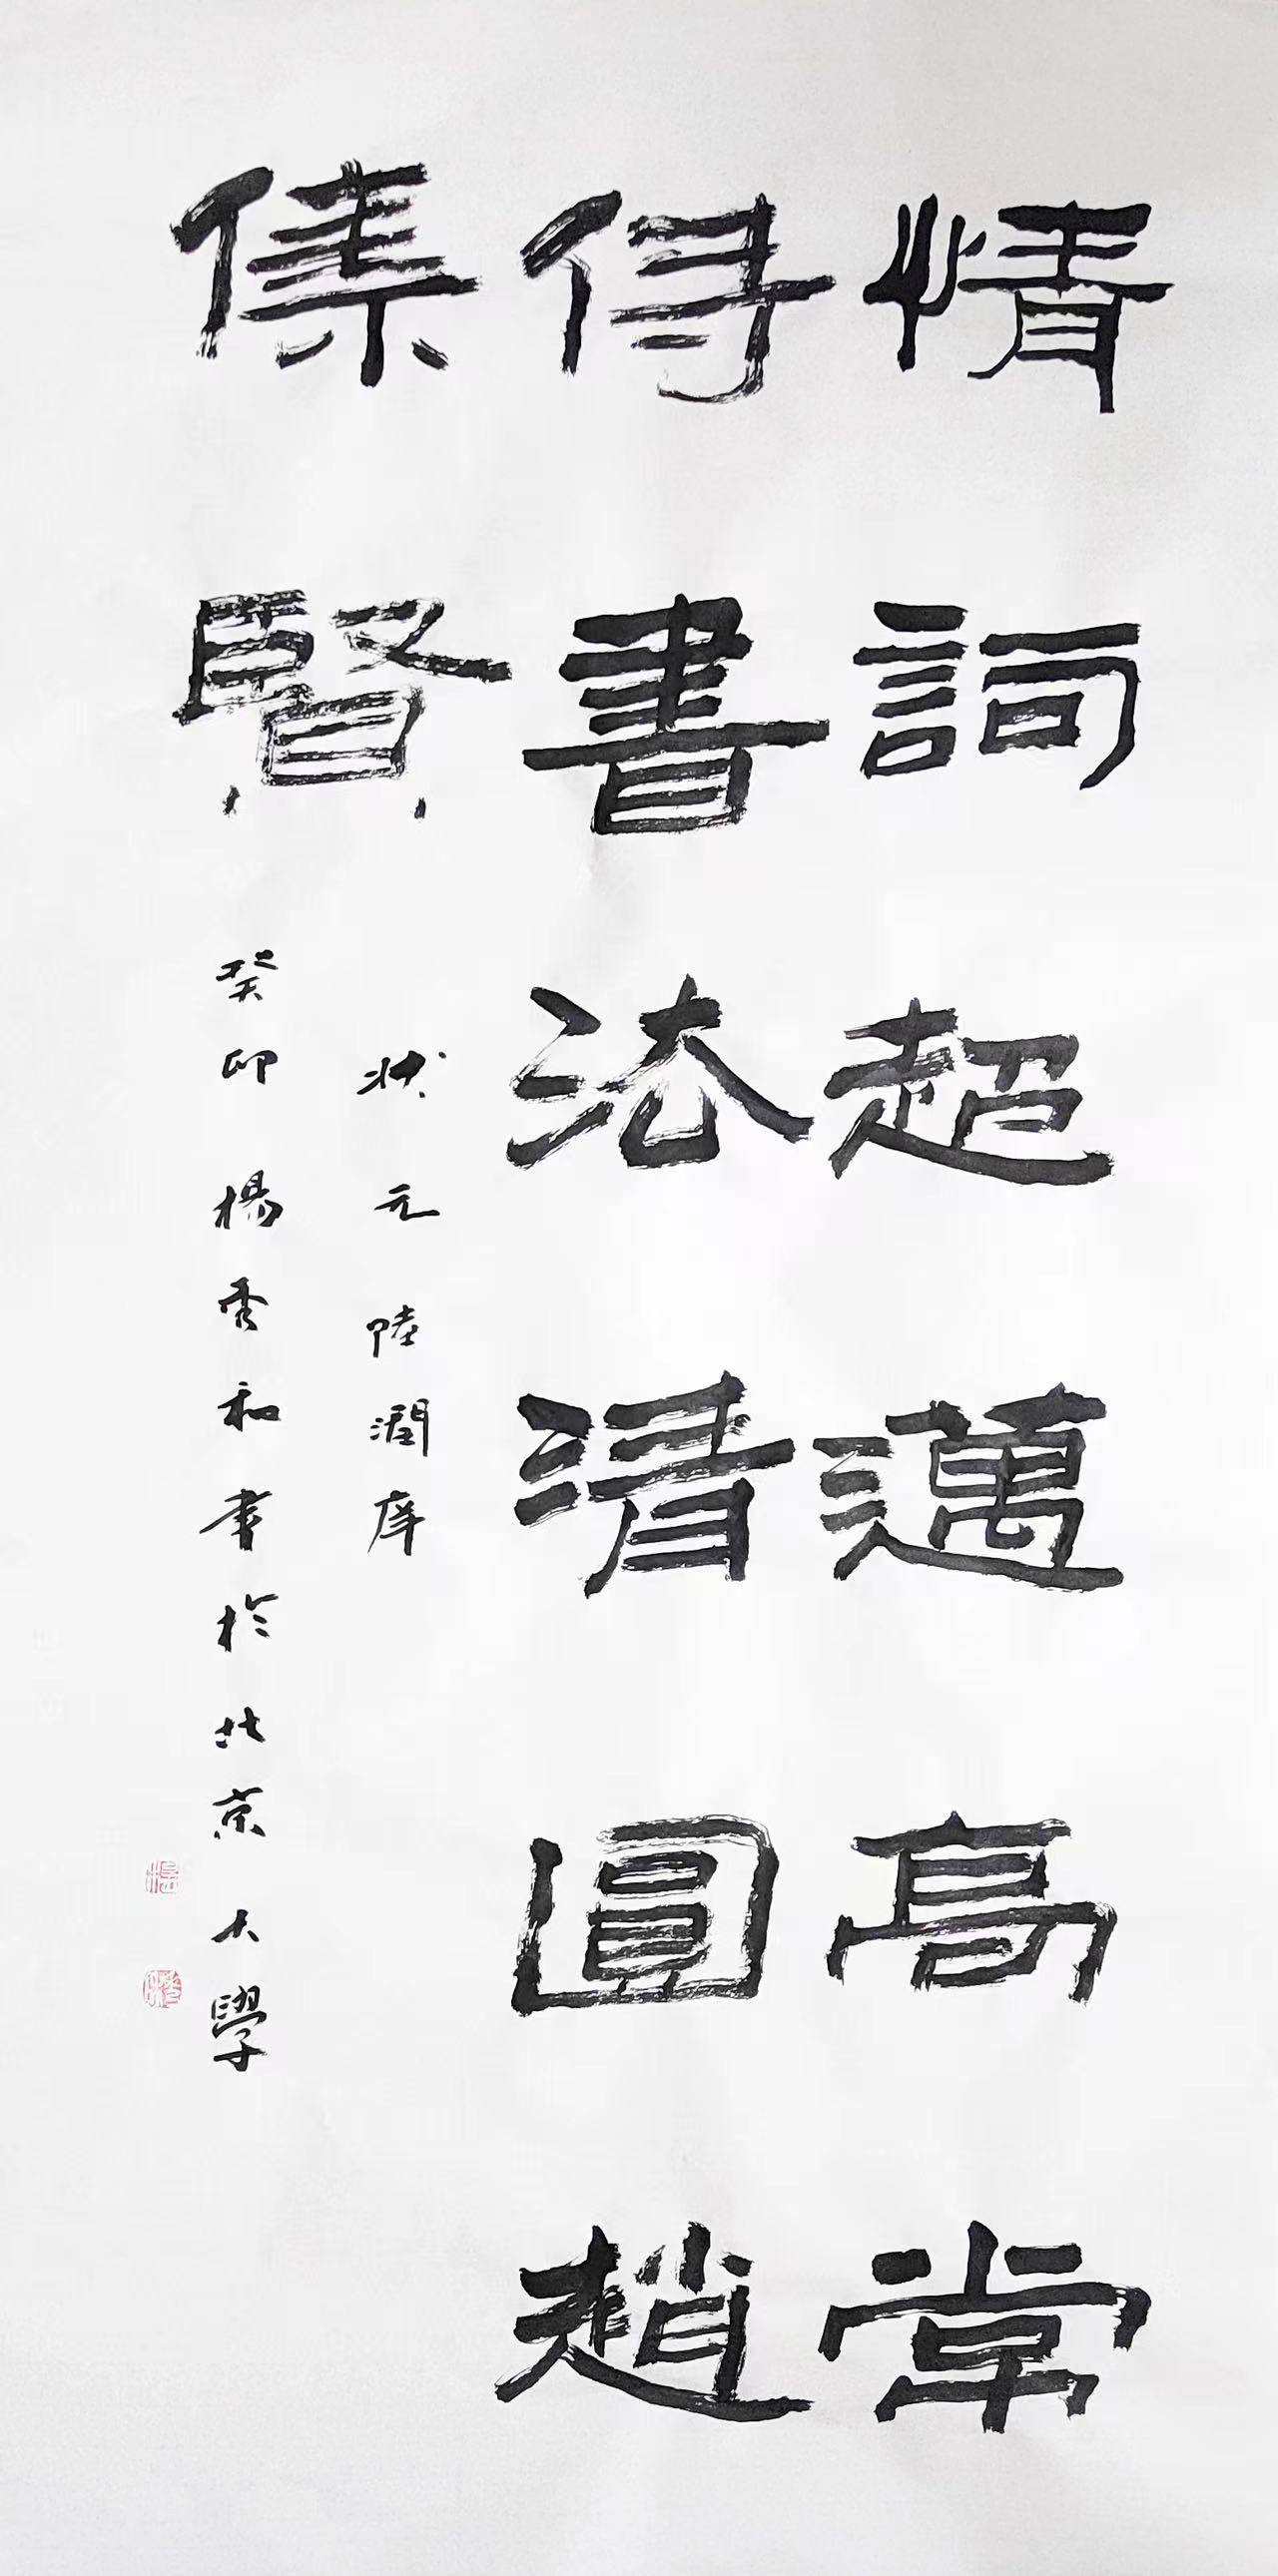 情詞超邁高常
侍書法清圓趙
集賢
狀元陸潤庠
癸卯楊秀和書於北京大學